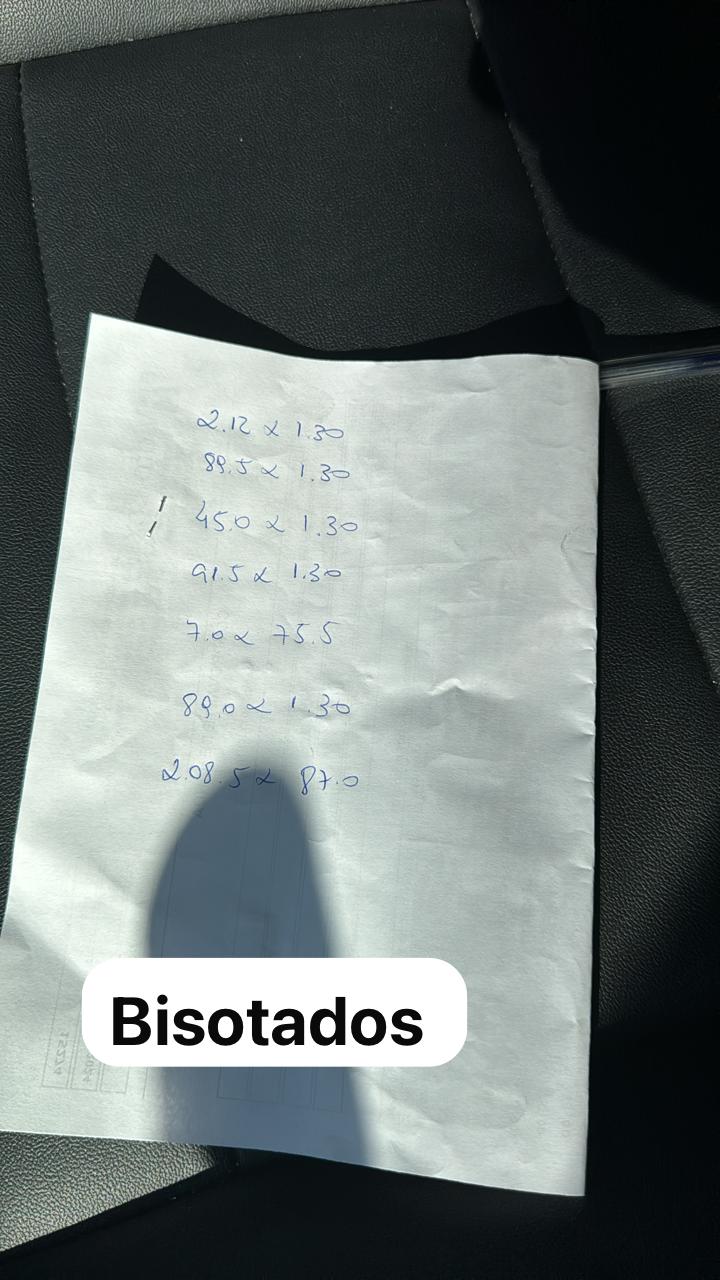 2.12 x 1.30
89.5 x 1.30
45.0 x 1.30
91.5 x 1.30
7.0 x 75.5
89.0 x 1.30
2.08.5 x 87.0
Bisotados
15274